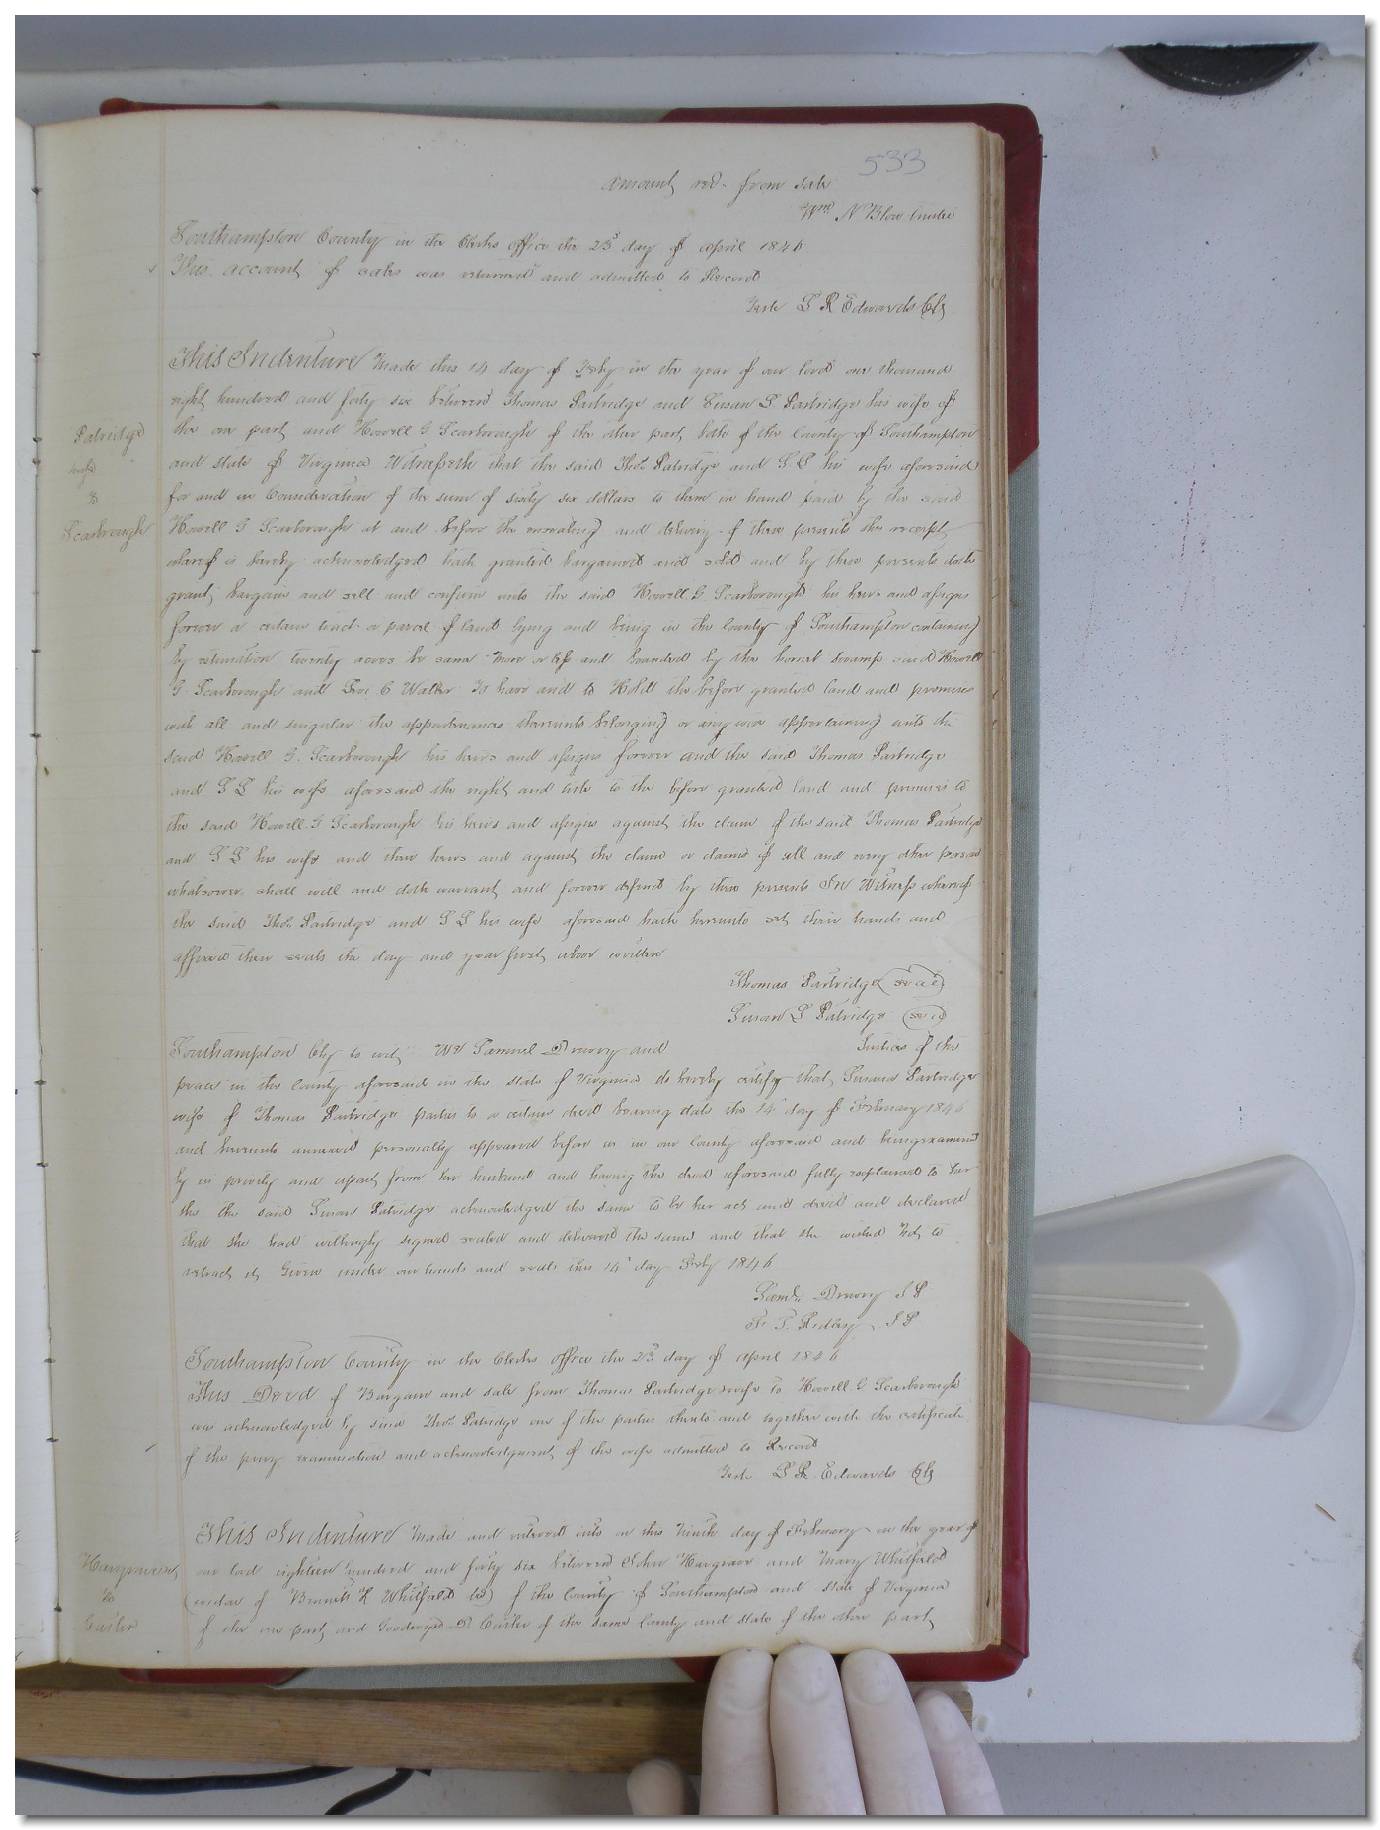 533
Amount recd. from sale
Wm N Blow trustee
Southampton County in the Clerks office the 23d day of April 1846
This account of sales was returned and admitted to Record
Teste L R Edwards Clk
This Indenture Made this 14 day of Feby in the year of our lord one thousand
eight hundred and forty six between Thomas Patridge and Susan S Patridge his wife of
the one part and Howell G Scarborough of the other part both of the County of Southampton
and state of Virginia Witnesseth that the said Thos Patridge and S S his wife aforesaid
for and in Consideration of the sum of sixty six dollars to them in hand paid by the said
Howell G Scarborough at and before the ensealing and delivery of these presents the receipt
whereof is hereby acknowledged hath granted bargained and sold and by these presents doth
grant bargain and sell and confirm unto the said Howell G Scarborough his heirs and assigns
forever a certain tract or parcel of land lying and being in the County of Southampton containing
by estimation twenty acres be same more or less and bounded by the hornet swamp said Howell
G Scarborough and C Walker To have and to Hold the before granted land and premises
with all and singular the appurtenances thereunto belonging or any wise appertaining unto the
said Howell G. Scarborough his heirs and assigns forever and the said Thomas Patridge
and S S his wife aforesaid the right and title to the before granted land and premises to
the said Howell G Scarborough his heirs and assigns against the claim of the said Thomas Patridge
and S S his wife and their heirs and against the claim or claims of all and every other person
whatsoever shall will and doth warrant and forever defend by these presents In Witness whereof
the said Thos Patridge and S S his wife aforesaid hath hereunto set their hands and
affixed their seals the day and year first above written
Thomas Patridge (seal)
Susan S Patridge (seal)
Southampton Cty to wit We Samuel Drewry and Justices of the
peace in the County aforesaid in the state of Virginia do hereby certify that Susan Patridge
wife of Thomas Patridge parties to a certain deed bearing date the 14 day of February 1846
and hereunto annexed personally appeared before us in our County aforesaid and being examined
by us privily and apart from her husband and having the deed aforesaid fully explained to her
the the said Susan Patridge acknowledged the same to be her act and deed and declared
that she had willingly signed sealed and delivered the same and that she wished not to
retract it Given under our hands and seals this 14 day Feby 1846
Saml Drewry J P
Ridley J P
Southampton County in the Clerks office the 23 day of April 1846
This Deed of Bargain and sale from Thomas Patridge & wife to Howell G Scarborough
was acknowledged by said Thos Patridge one of the parties thereto and together with the certificate
of the privy examination and acknowledgment of the wife admitted to Record
Teste L R Edwards Clk
Patridge
wife
&
Scarbrough
This Indenture Made and entered into on this Ninth day of February in the year of
our lord eighteen hundred and forty six between John Hargrave and Mary Whitfield
(widow of Bennett Whitfield) of the County of Southampton and state of Virginia
of the one part and D of the same County and state of the other part
Hargrave
to